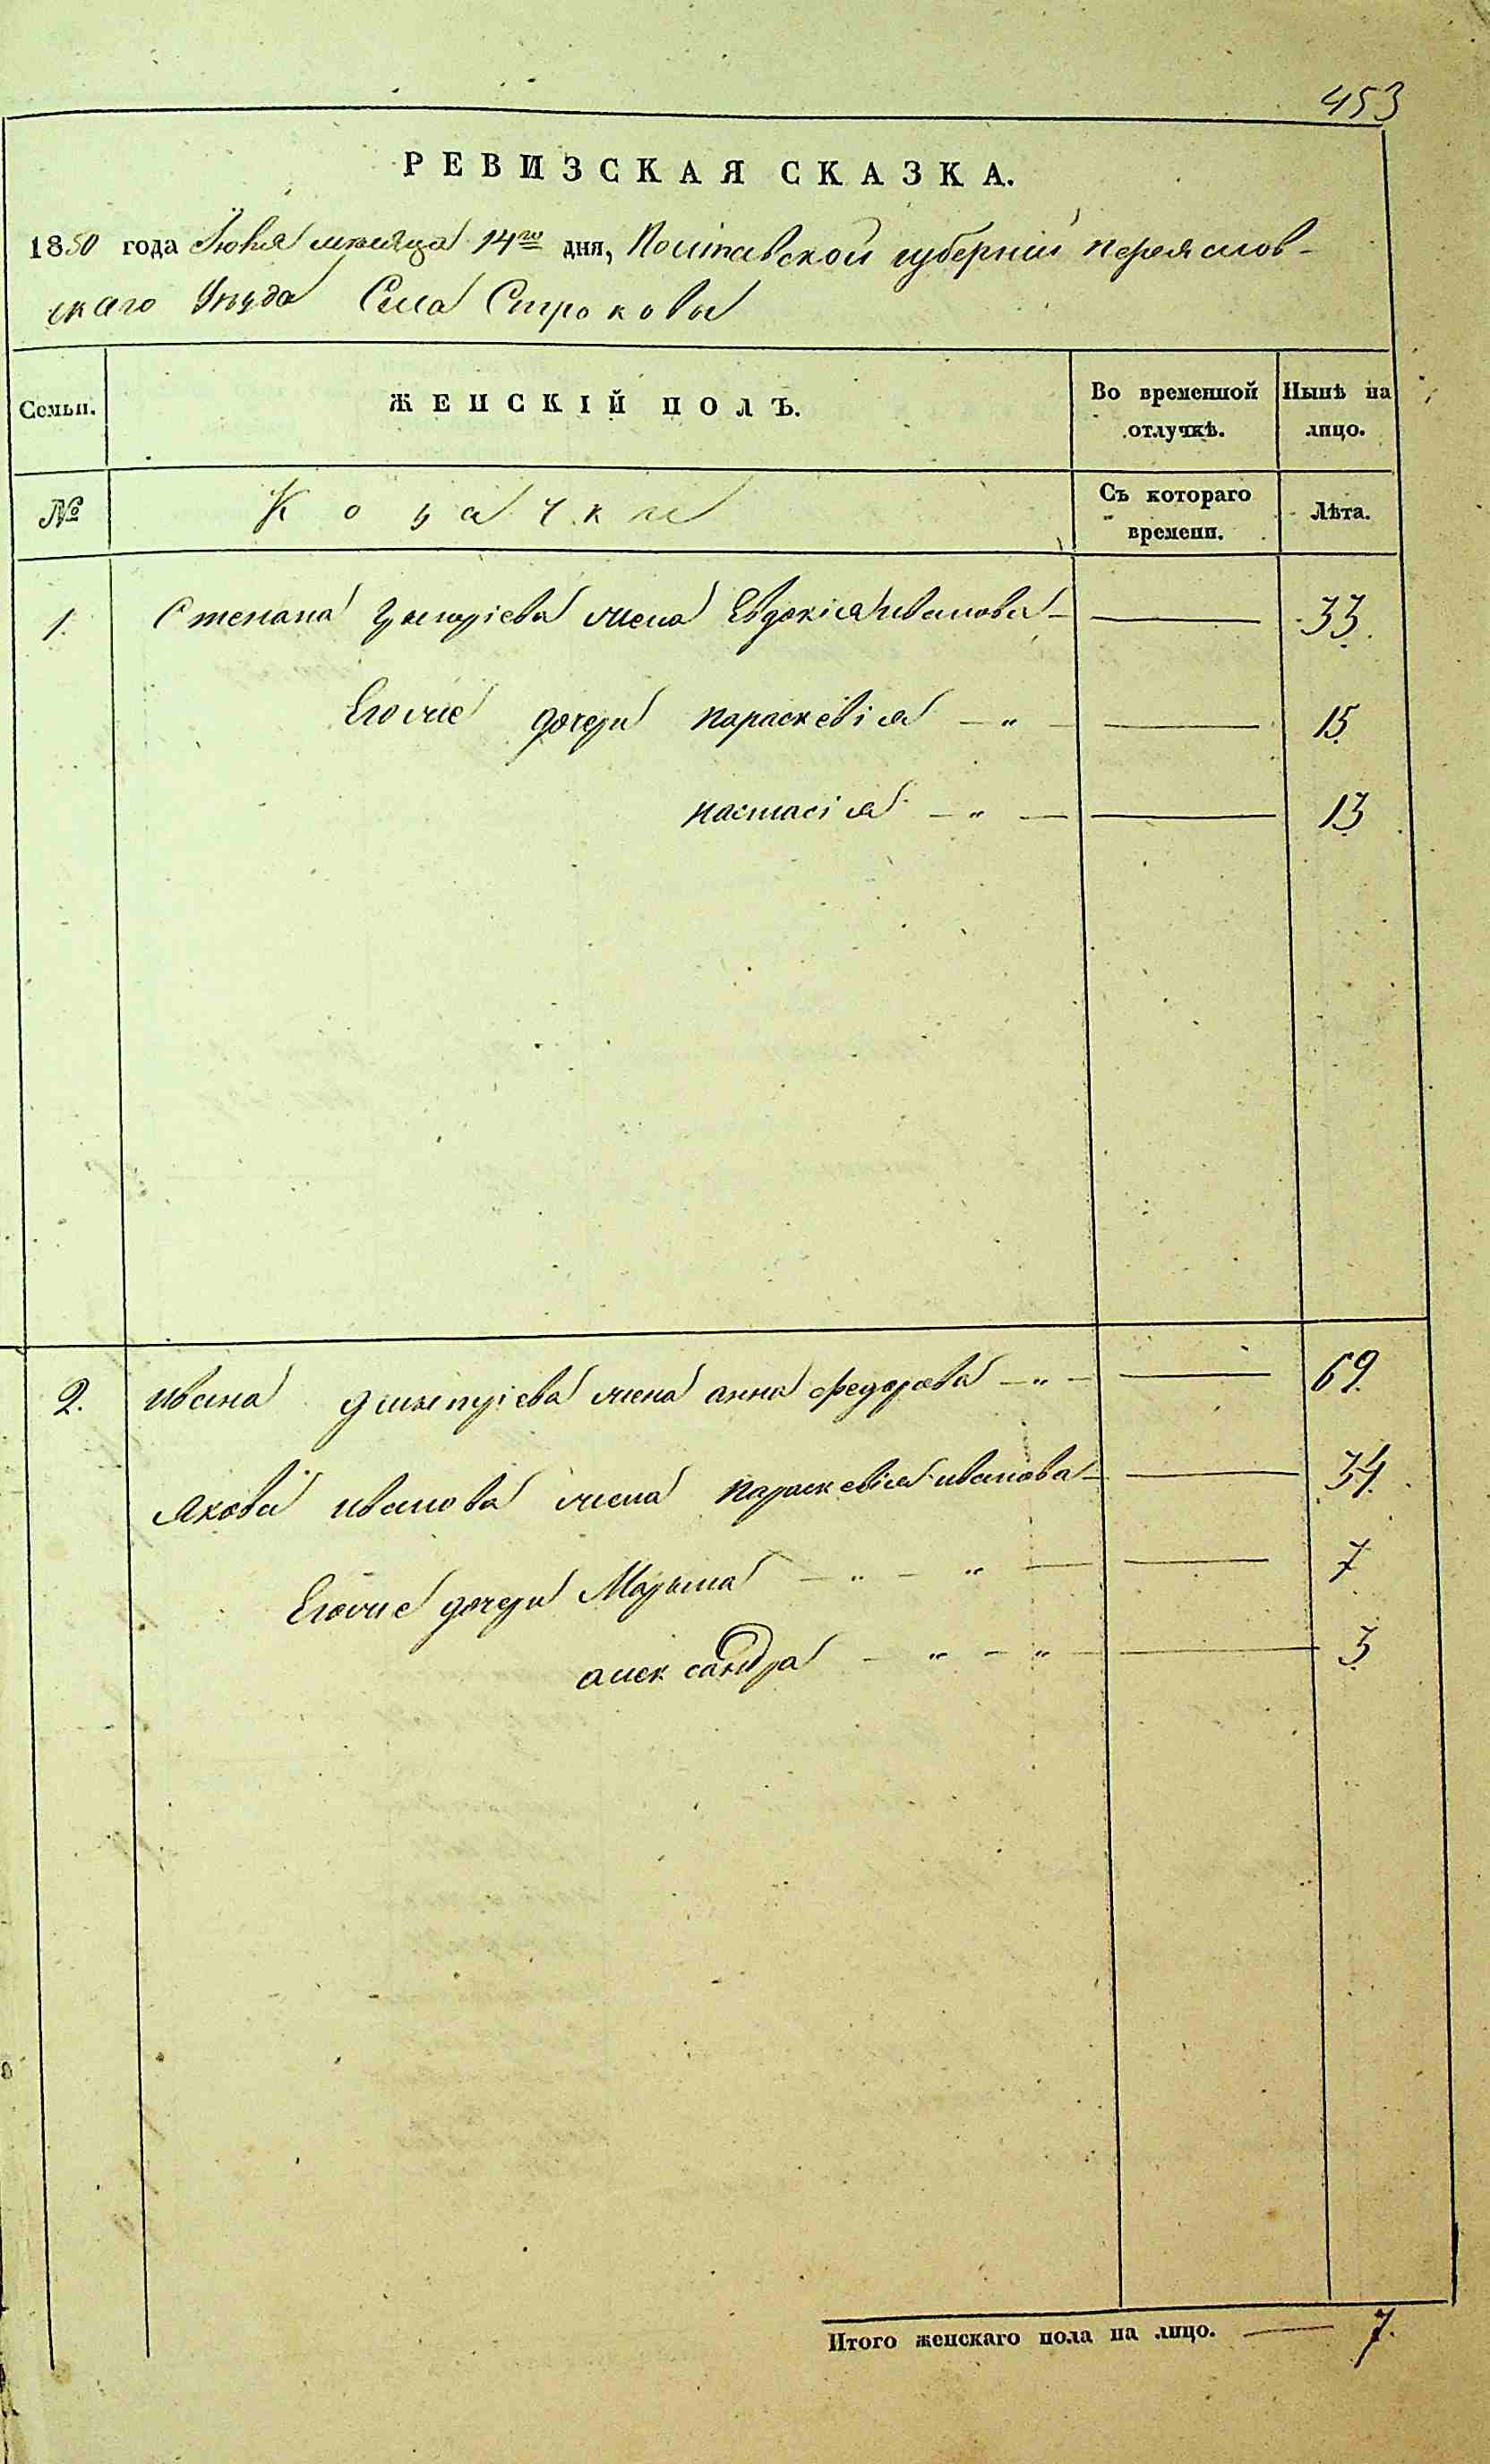 453
РЕВИЗСКАЯ СКАЗКА.
1850 года Июня мѣсяца 14го дня, Полтавской губерніи Переяслов-
скаго Уѣзда Села Строковы
Семьи. ЖЕНСКІЙ ПОЛЪ. Во временной отлучкѣ. Нынѣ на лицо.
№ Козачки Съ котораго времени. Лѣта.
1. Степана Дмитріева жена Евдокія Иванова — 33.
Его же дочери Параскевія — „ — 15.
Настасія — „ — 13
2. Ивана Дмитріева жена Анна Федорова — „ — 69.
Якова Иванова жена Параскевія Иванова — 34.
Его же дочери Марына — „ — „ — 7
Александра — „ — „ — 3
Итого женскаго пола на лицо. — 7.